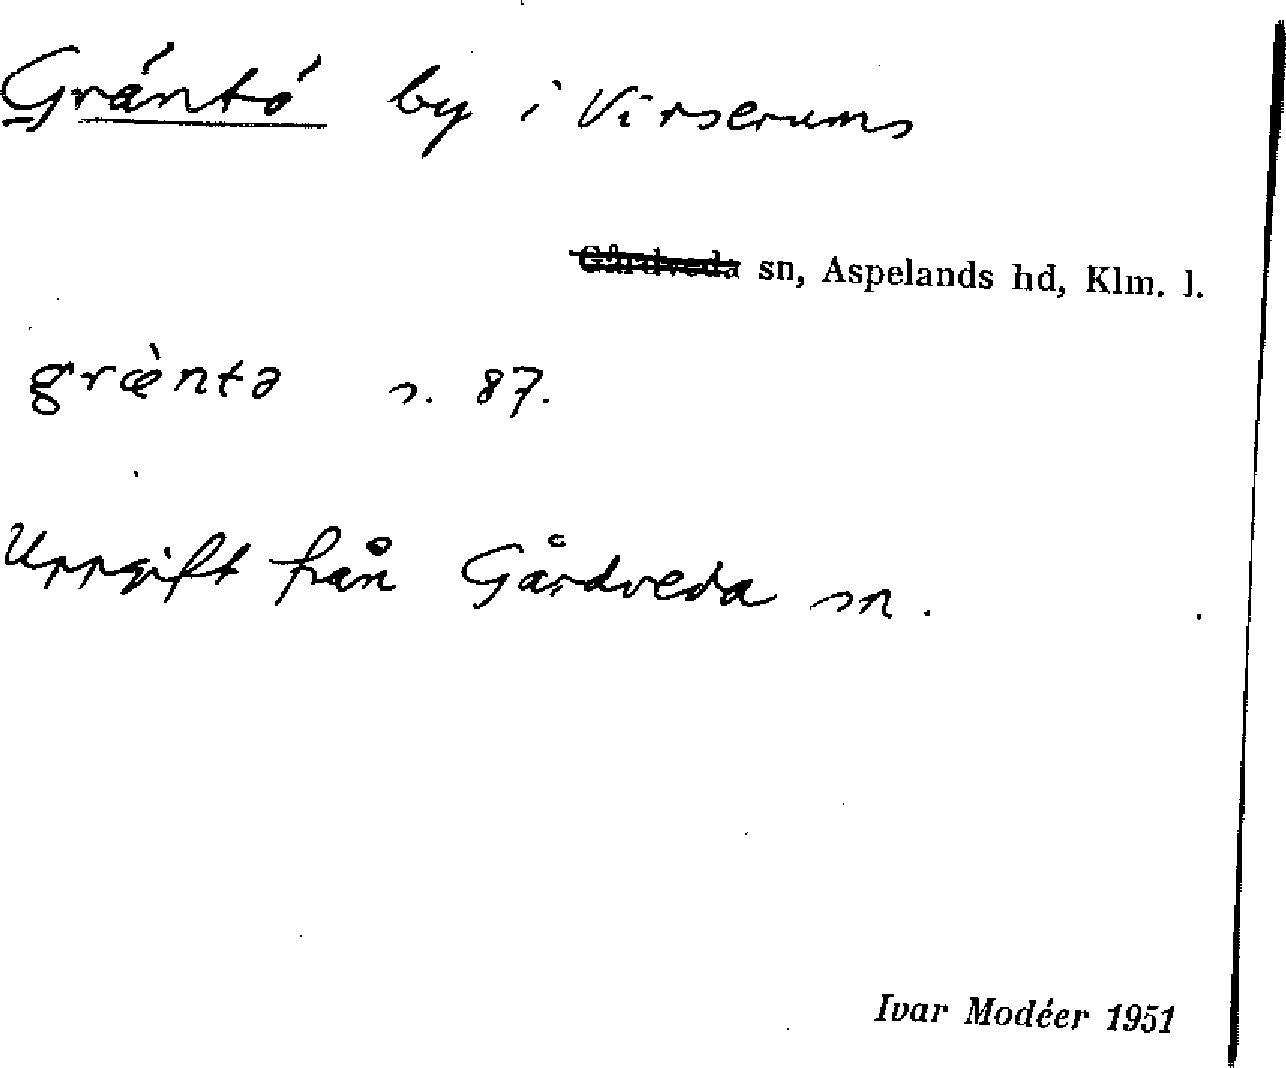 Grántó by i Virserums
~~Gårdveda~~ sn, Aspelands hd, Klm. l.
græ̀ntə s. 87.
Uppgift från Gårdveda sn.
Ivar Modéer 1951